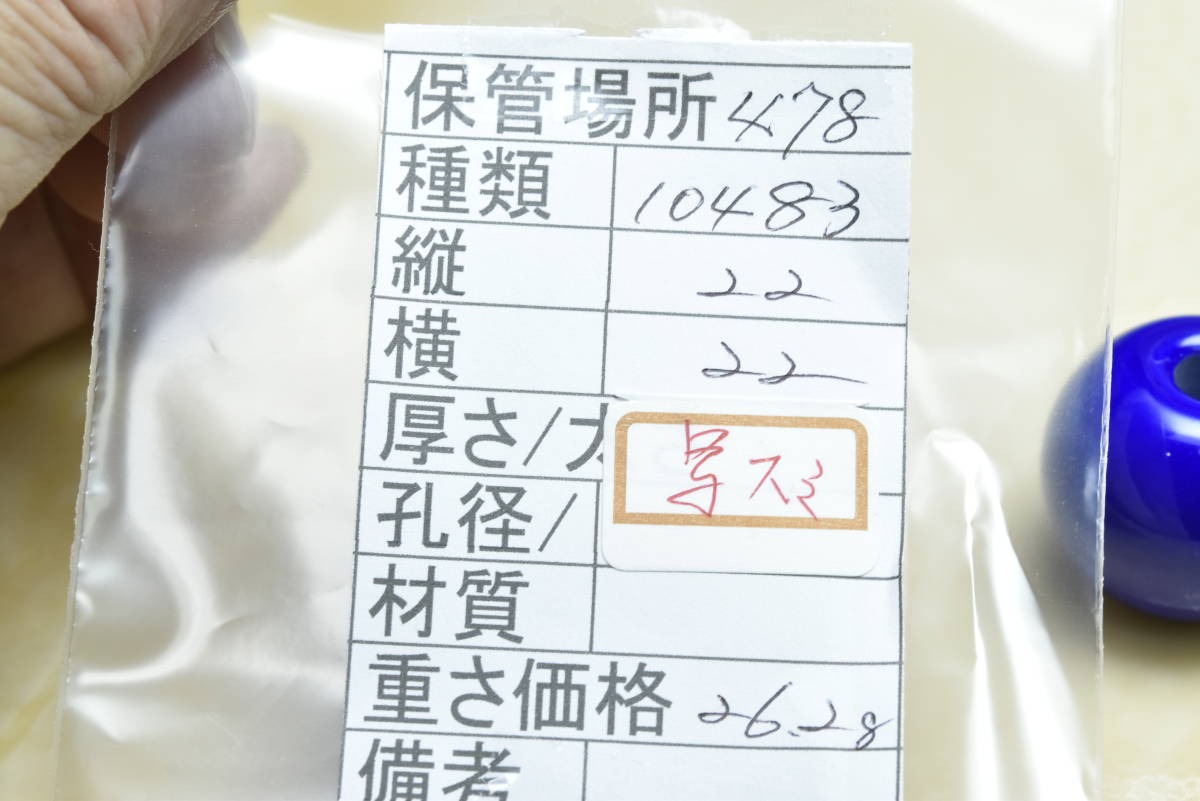 保管場所 478
種類 10483
縦 22
横 22
厚さ/
写スミ
孔径/
材質
重さ価格 26.2g
備考